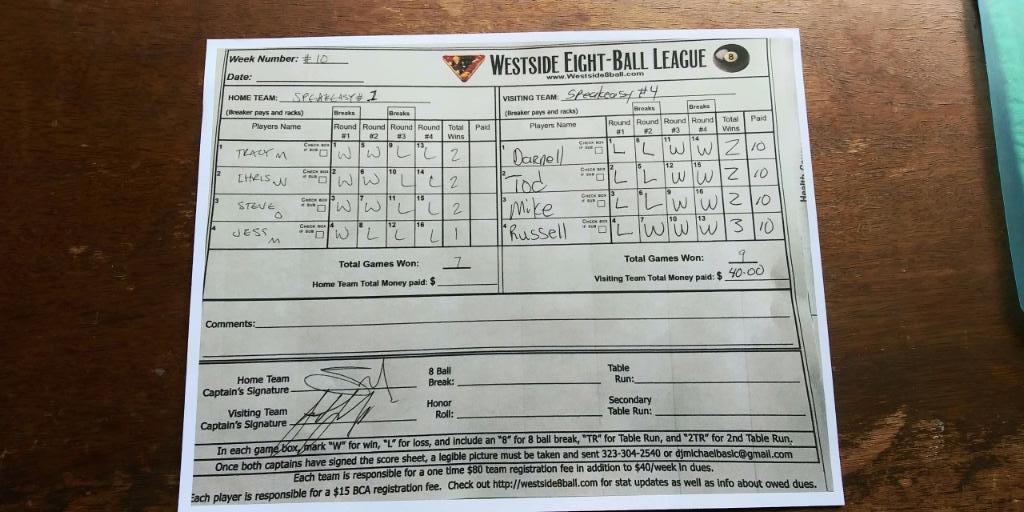 Week Number: #10
WESTSIDE EIGHT-BALL LEAGUE 8
www.Westside8ball.com
Date:
HOME TEAM: SPEAKEASY # 1
VISITING TEAM: Speakeasy #4
(Breaker pays and racks) Breaks Breaks
(Breaker pays and racks) Breaks Breaks
Players Name Round #1 Round #2 Round #3 Round #4 Total Wins Paid
Players Name Round #1 Round #2 Round #3 Round #4 Total Wins Paid
1 TRACY M CHECK BOX IF SUB 1 W 5 W 9 L 13 L 2
1 Darnell CHECK BOX IF SUB 1 L 5 L 11 W 14 W 2 10
2 CHRIS W CHECK BOX IF SUB 2 W 6 W 10 L 14 L 2
2 Tod CHECK BOX IF SUB 2 L 5 L 12 W 15 W 2 10
3 STEVE O CHECK BOX IF SUB 3 W 7 W 11 L 15 L 2
3 Mike CHECK BOX IF SUB 3 L 6 L 9 W 16 W 2 10
4 JESS M CHECK BOX IF SUB 4 W 8 L 12 L 16 L 1
4 Russell CHECK BOX IF SUB 4 L 7 W 10 W 13 W 3 10
Total Games Won: 7
Total Games Won: 9
Home Team Total Money paid: $
Visiting Team Total Money paid: $ 40.00
Comments:
Home Team Captain's Signature
8 Ball Break:
Table Run:
Visiting Team Captain's Signature
Honor Roll:
Secondary Table Run:
In each game box, mark "W" for win, "L" for loss, and include an "8" for 8 ball break, "TR" for Table Run, and "2TR" for 2nd Table Run.
Once both captains have signed the score sheet, a legible picture must be taken and sent 323-304-2540 or djmichaelbasic@gmail.com
Each team is responsible for a one time $80 team registration fee in addition to $40/week in dues.
Each player is responsible for a $15 BCA registration fee. Check out http://westside8ball.com for stat updates as well as info about owed dues.